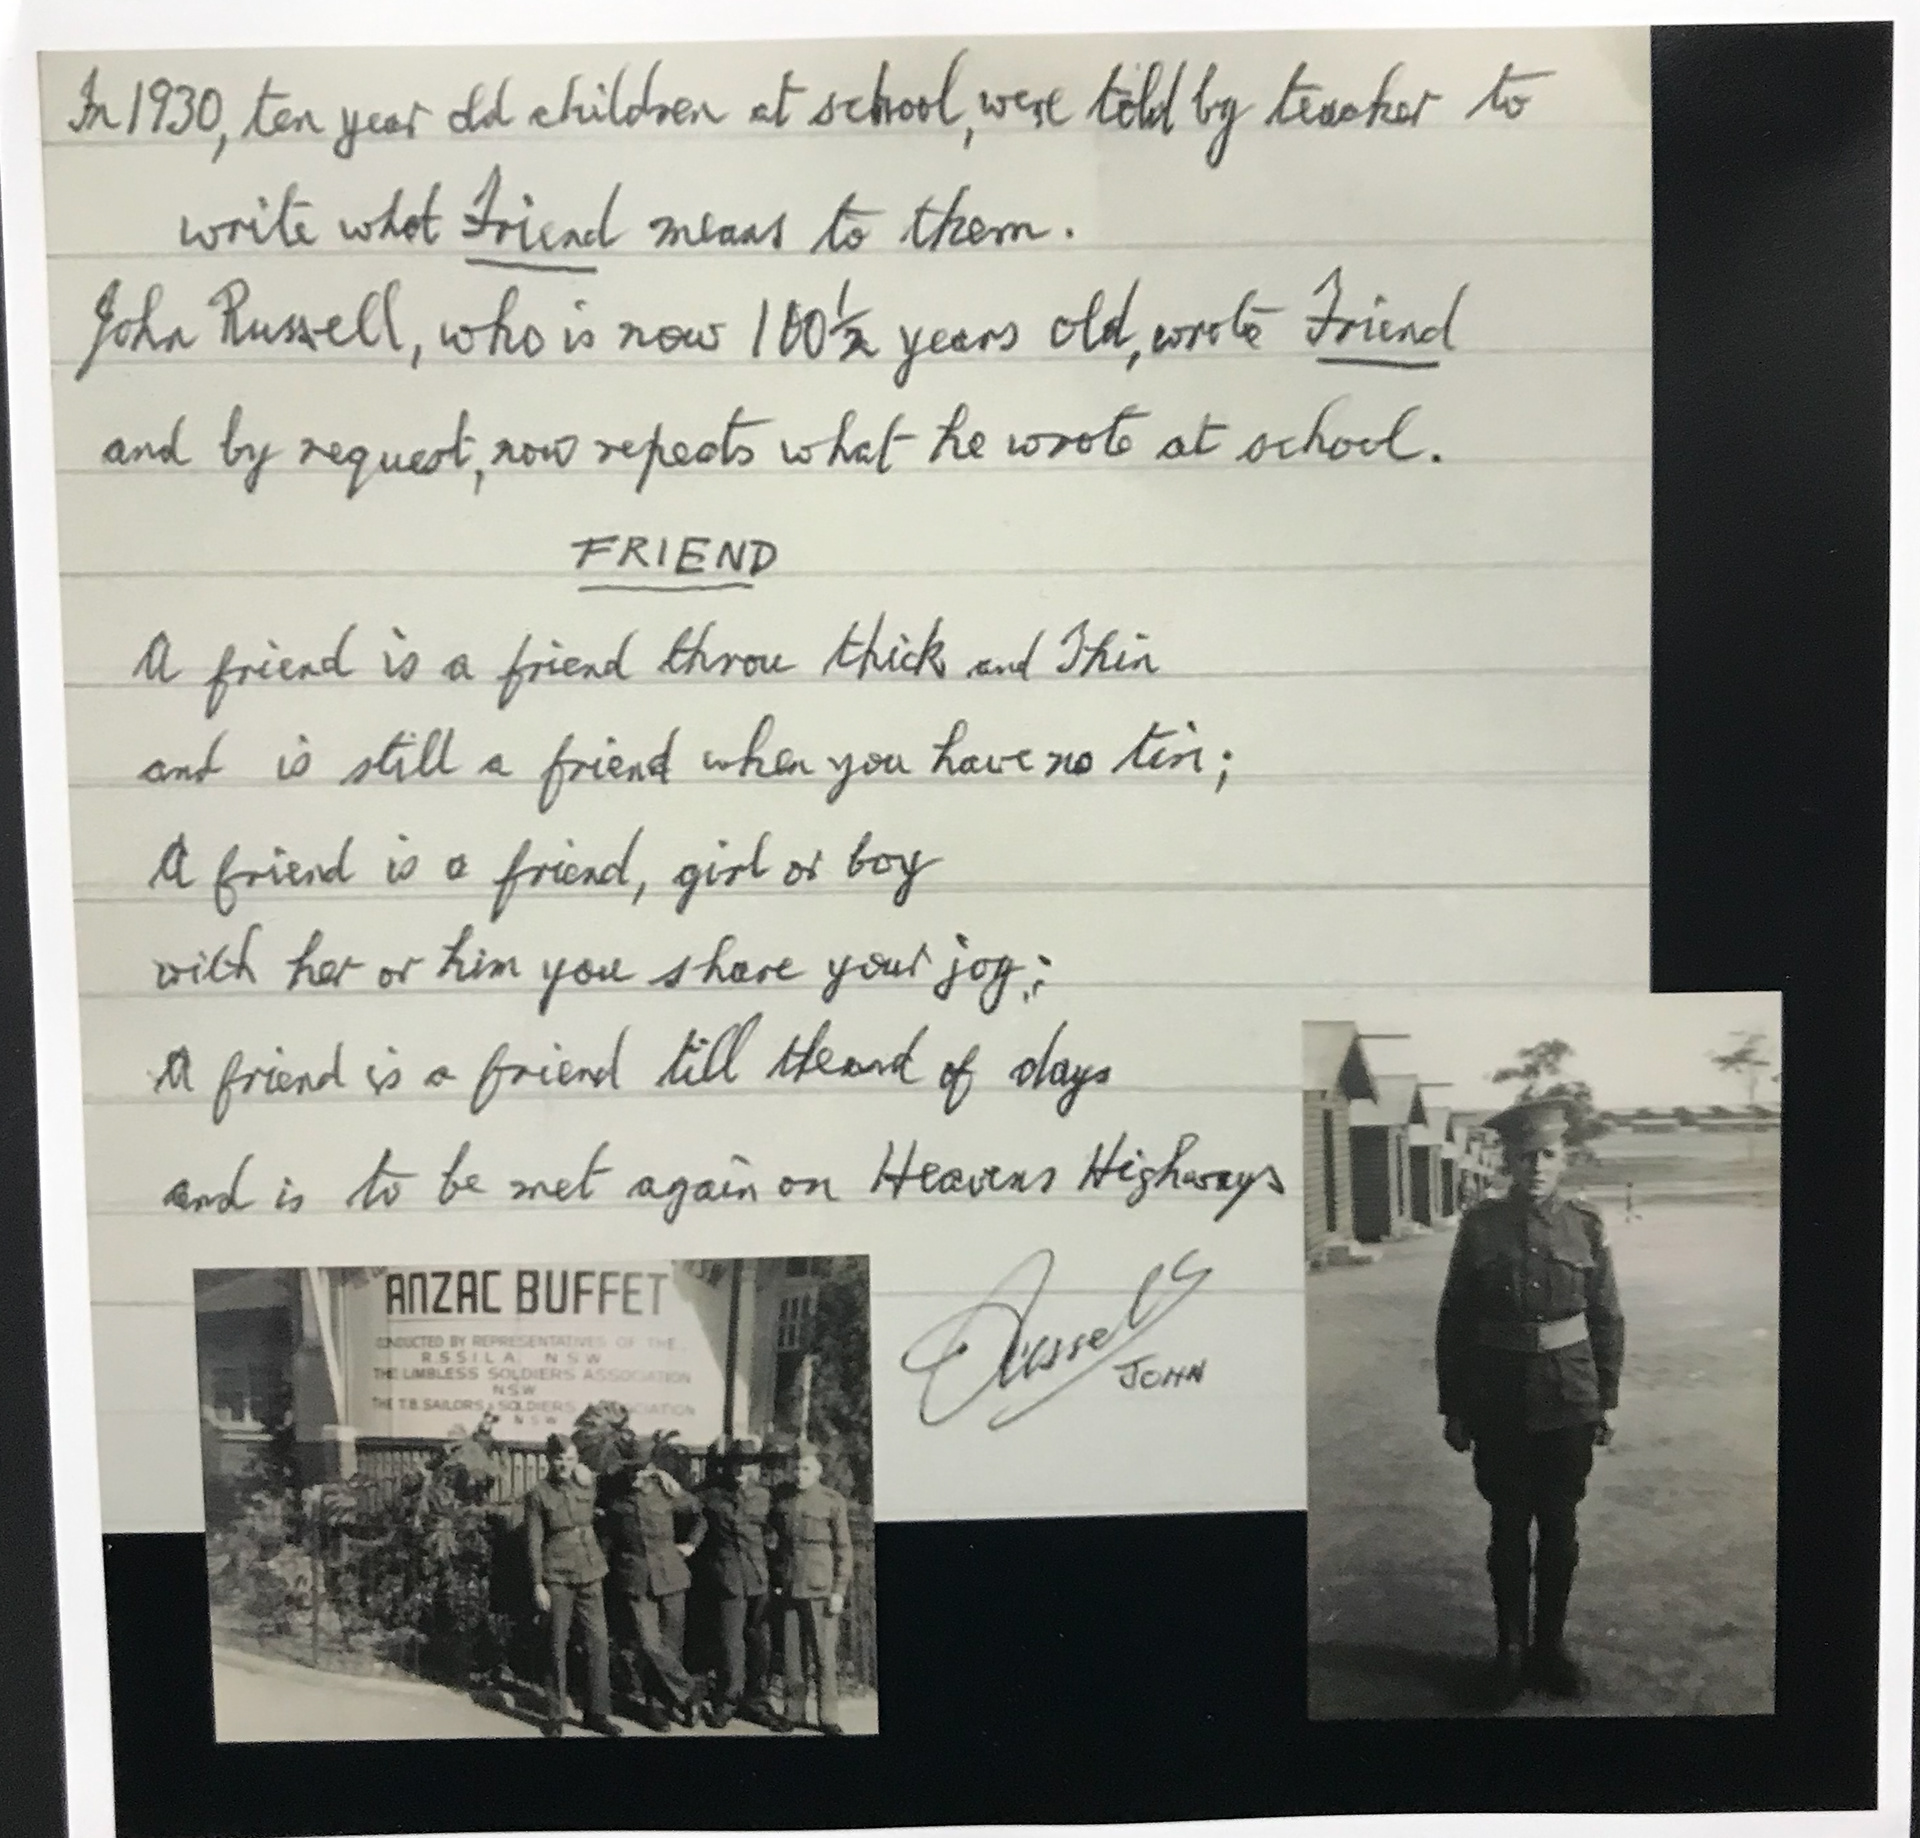 In 1930, ten year old children at school, were told by teacher to
write what Friend means to them.
John Russell, who is now 100½ years old, wrote Friend
and by request, now repeats what he wrote at school.
FRIEND
A friend is a friend throu thick and Thin
and is still a friend when you have no tin;
A friend is a friend, girl or boy
with her or him you share your joy;
A friend is a friend till the end of days
and is to be met again on Heavens Highways
Russell
JOHN
ANZAC BUFFET
CONDUCTED BY REPRESENTATIVES OF THE
R.S.S.I.L.A. N S W
THE LIMBLESS SOLDIERS ASSOCIATION
NSW
THE T.B. SAILORS & SOLDIERS ASSOCIATION
N S W